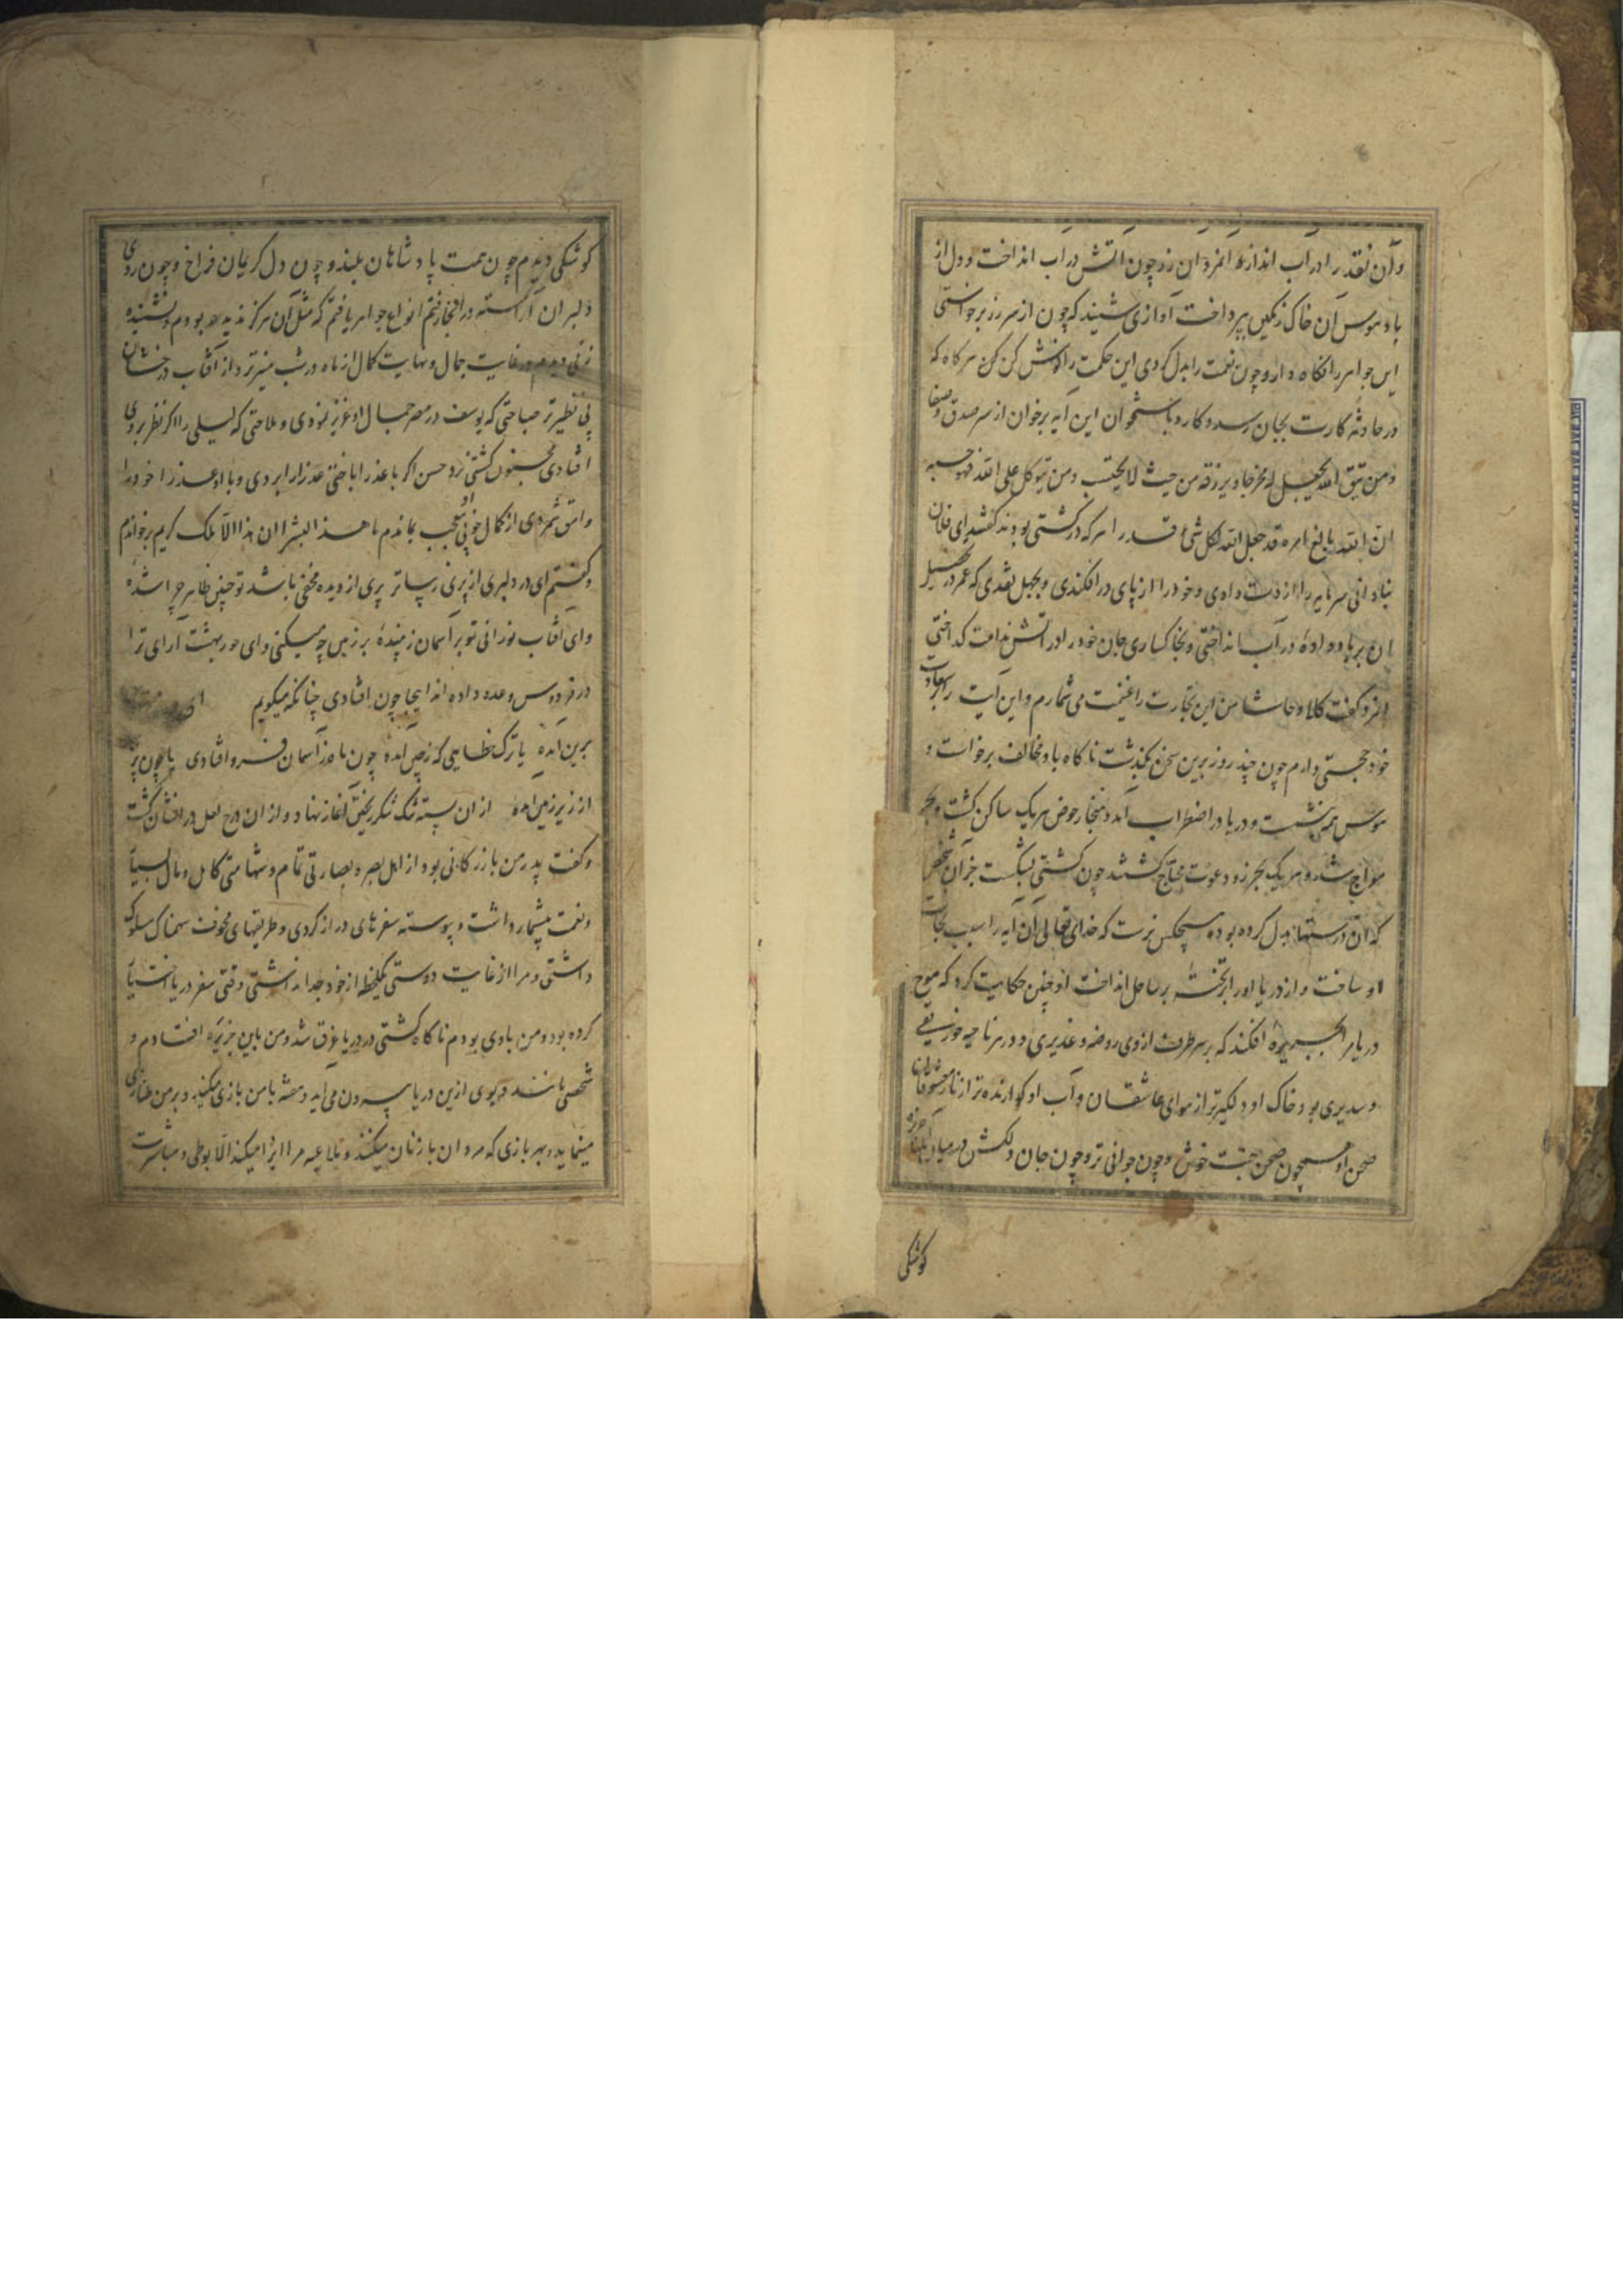 وآن نقد را در آب انداز آنمرد آن زر چون آتش در آب انداخت و دل از
باد هوس آن خاک رنگین بپرداخت آوازی شنید که چون از سر زر برخواستی
این جواهر را نگاه دار و چون نعمت را بدل کردی این حکمت را گوش کن کن هرگاه که
در حادثه کارت بجان رسد و کارد باستخوان این آیه برخوان از سر صدق و صفا
ومن یتق الله یجعل له مخرجا ویرزقه من حیث لا یحتسب ومن یتوکل علی الله فهو حسبه
ان الله بالغ امره قد جعل الله لکل شئ قدرا هر که در کشتی بودند گفتند ای فلان
بنادانی سرمایه را از دست دادی و خود را از پای در افکندی و بجهل نقدی که عمر در تحصیل
آن بر باد داده در آب انداختی و بخاکساری جان خود را در آتش ندامت گداختی
آنمرد گفت کلا و حاشا من این تجارت را غنیمت می شمارم و این آیت
خود حجتی دارم چون چند روز برین سخن بگذشت ناگاه باد مخالف برخواست و
هوس همه بنشست و دریا در اضطراب آمد هر یک ساکن گشت و بحر
مواج شد و هر یک بعجز و دعوت محتاج گشتند چون کشتی بشکست جز آن شخص
که آن درستها بدل کرده بود هیچکس نرست که خدای تعالی آن آیه را سبب نجات
او ساخت و از دریا او را بر تخته بر ساحل انداخت او چنین حکایت کرد که موج
دریا مرا بجزیره افکند که بر هر طرف از وی روضه و غدیری و در هر ناحیه خورنقی
و سدیری بود خاک او دلگیرتر از هوای عاشقان و آب او گوارنده تر از ناز معشوقان
صحن او همچون صحن جنت خوش و چون جوانی تر و چون جان دلکش در میان آن جزیره
کوشکی
کوشکی دیدم چون همت پادشاهان بلند و چون دل کریمان فراخ و چون روی
دلبران آراسته در آنجا رفتم انواع جواهر یافتم که مثل آن هرگز ندیده بودم و نشنیده
زنی دیدم در غایت جمال و نهایت کمال از ماه در شب منیرتر و از آفتاب درخشان
بی نظیرتر صباحتی که یوسف در مصر جمال او عزیز نمودی و ملاحتی که لیلی را اگر نظر بر وی
افتادی مجنون گشتی نرد حسن اگر با عذرا باختی عذرا را بردی و با او عذرا خود را
وامق شمردی از کمال خوبی او متعجب بماندم ما هذا بشرا ان هذا الا ملک کریم برخواندم
و گفتم ای در دلبری از پری زیباتر پری از دیده مخفی باشد تو چنین ظاهر چرا شدهٔ
و ای آفتاب نورانی تو بر آسمان زیبندهٔ بر زمین چه میکنی و ای حور بهشت آرای ترا
در فردوس وعده داده اند اینجا چون افتادی چنانکه میگویم ای
برین آمده یا ترک خطایی که ز چین آمدهٔ چون ماه ز آسمان فرو افتادی یا چون پری
از زیر زمین آمده از ان پسته تنگ شکر ریختن آغاز نهاد و از ان درج لعل در افشان گشت
و گفت پدر من بازرگانی بود از اهل بصره بصارتی تمام و شهامتی کامل و مال بسیار
و نعمت بیشمار داشت و پیوسته سفرهای دراز کردی و طریقهای مخوف سهمناک سلوک
داشتی و مرا از غایت دوستی یکلحظه از خود جدا نداشتی وقتی سفر دریا اختیار
کرده بود و من با وی بودم ناگاه کشتی در دریا غرق شد و من باین جزیره افتادم و
شخصی مانند دیوی ازین دریا بیرون می آید و همیشه با من بازی میکند و بر من طنازی
مینماید و هر بازی که مردان با زنان میکنند و ملاعبه مرا ایذا میکند الا بوطی و مباشرت